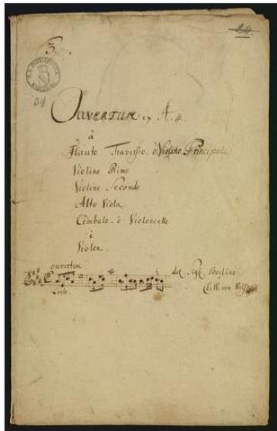 3.
34
OUVERTUR ex A #.
à
Flauto Traverso. ò Violino Principale
Violino Primo
Violino Secondo
Alto Viola.
Cembalo. è Violoncello
è
Violon.
ouverture
del Sigr.